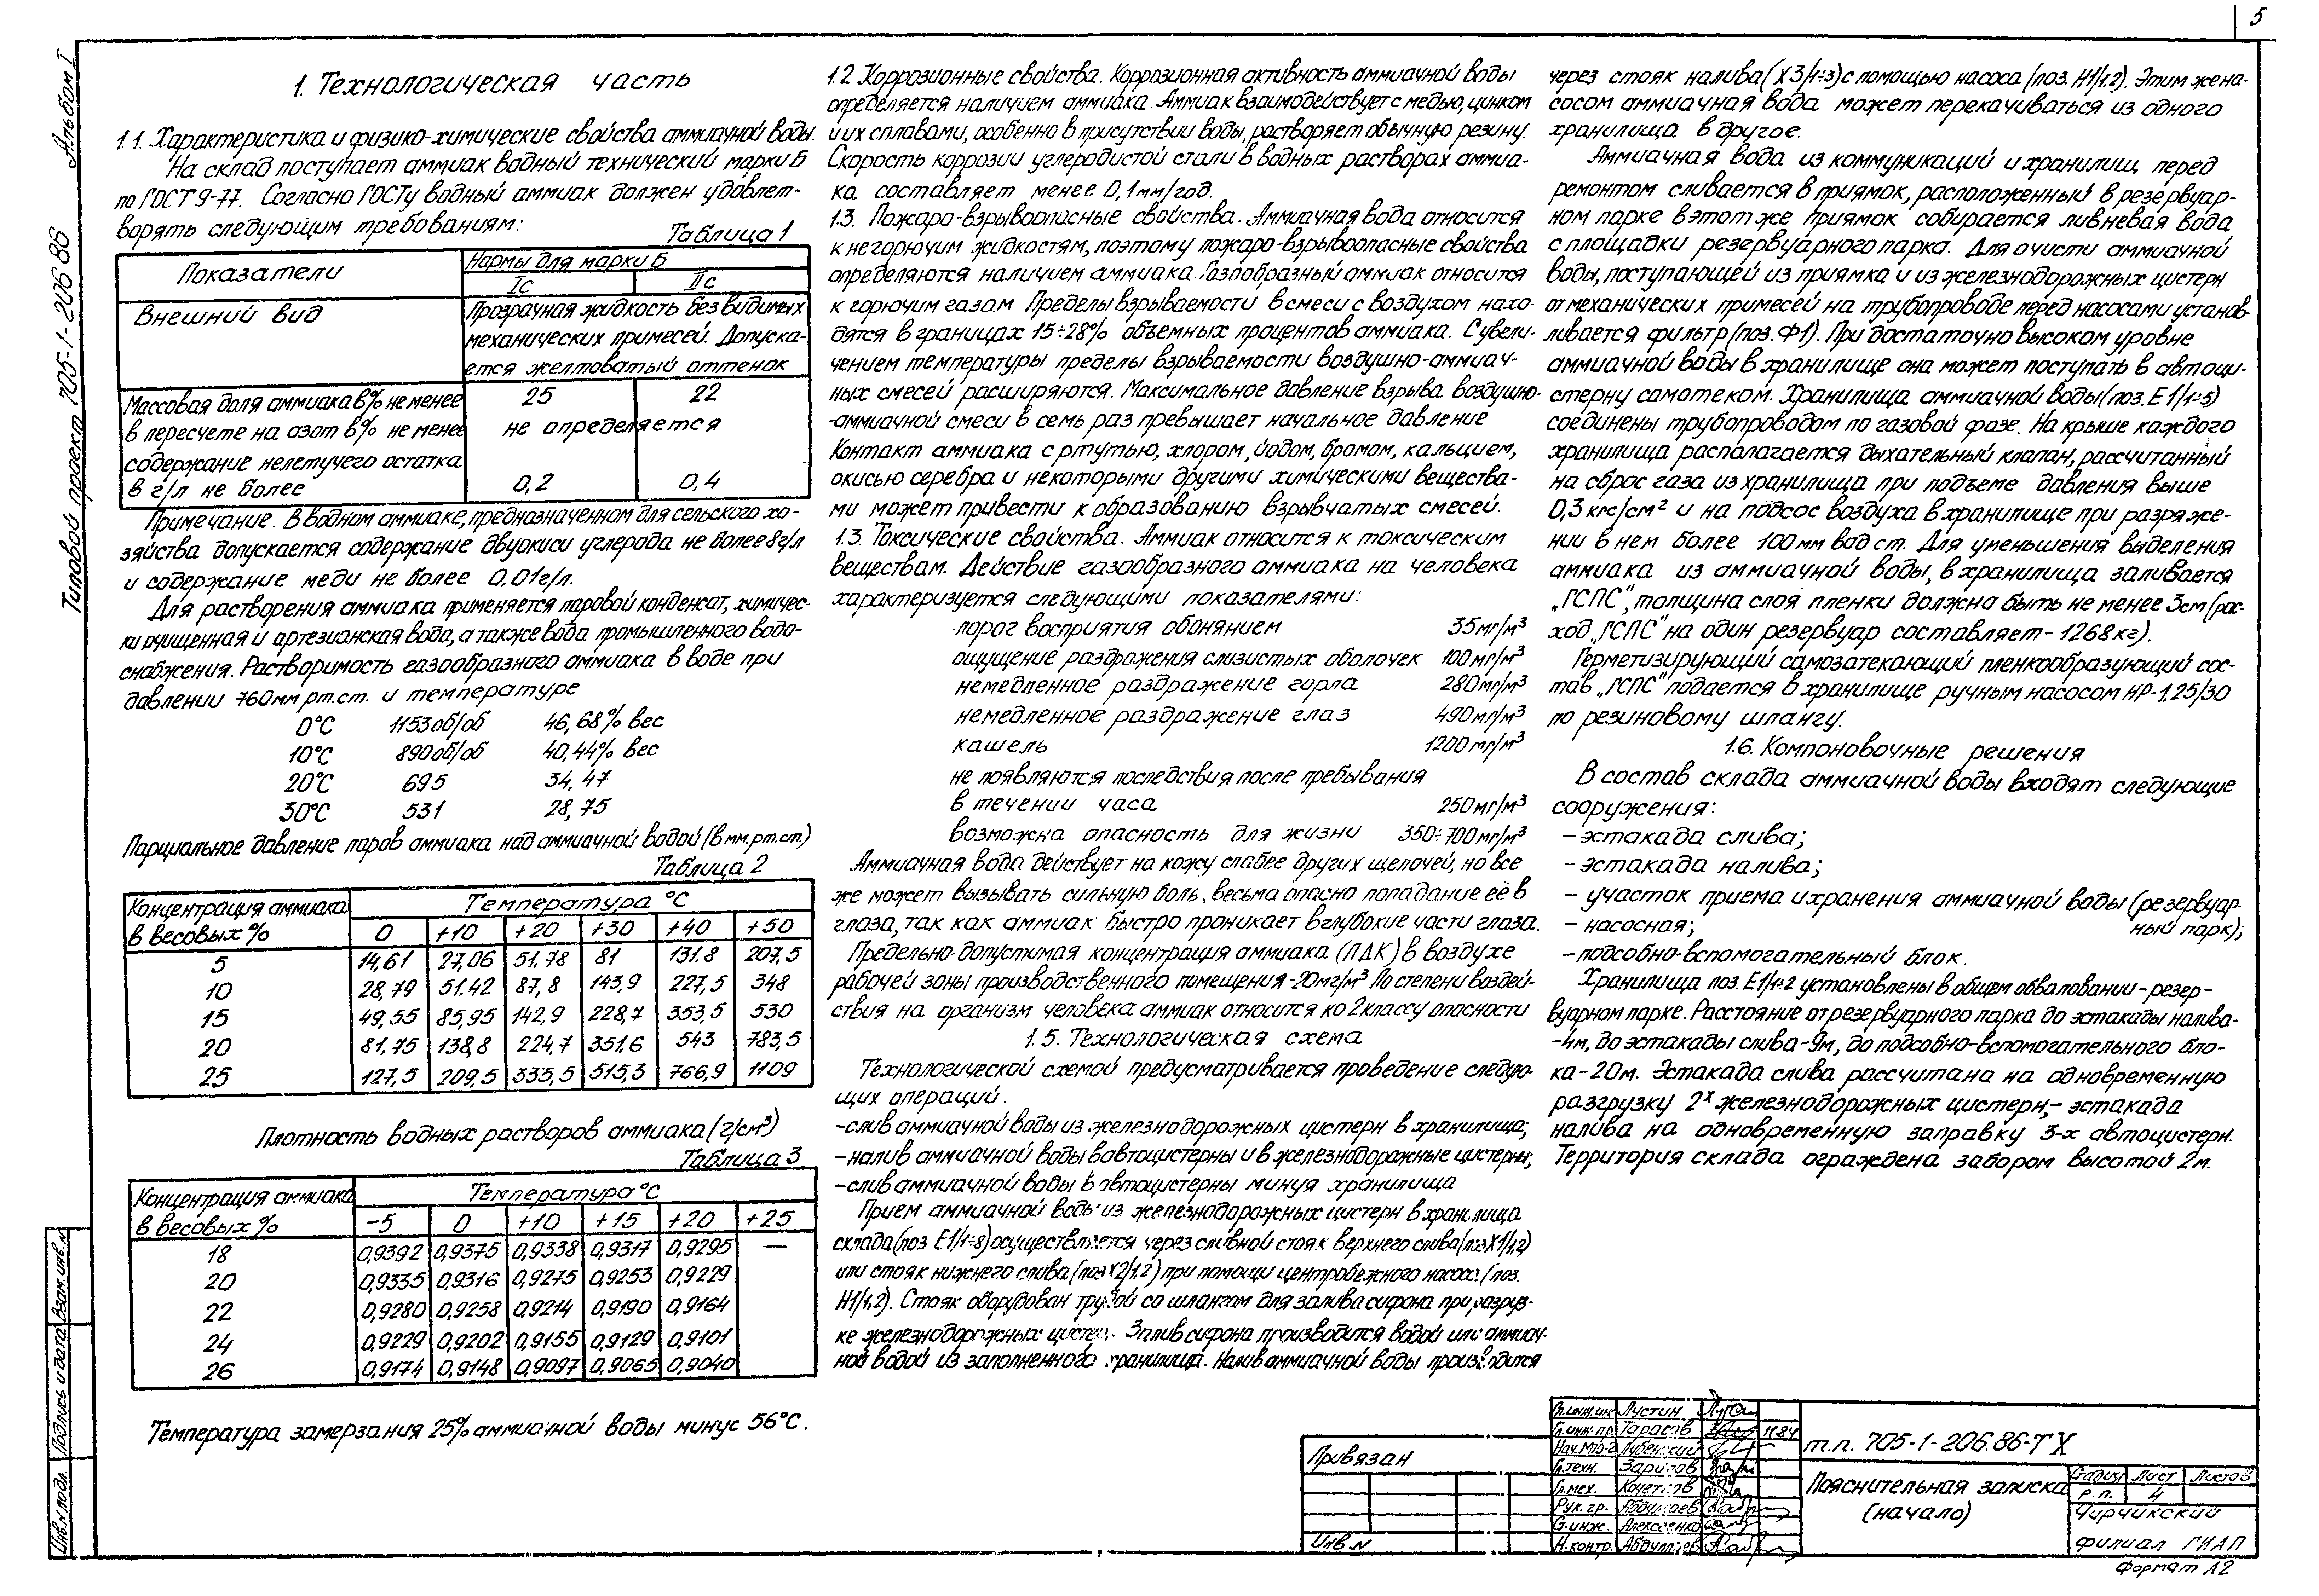 5
Альбом I
Типовой проект 705-1-206 86
1. Технологическая часть
1.1. Характеристика и физико-химические свойства аммиачной воды.
На склад поступает аммиак водный технический марки Б
по ГОСТ 9-77. Согласно ГОСТу водный аммиак должен удовлет-
ворять следующим требованиям:
Таблица 1
Показатели Нормы для марки Б
Iс IIс
Внешний вид Прозрачная жидкость без видимых
механических примесей. Допуска-
ется желтоватый оттенок
Массовая доля аммиака в % не менее 25 22
в пересчете на азот в % не менее не определяется
содержание нелетучего остатка
в г/л не более 0,2 0,4
Примечание. В водном аммиаке, предназначенном для сельского хо-
зяйства допускается содержание двуокиси углерода не более 8 г/л
и содержание меди не более 0,01 г/л.
Для растворения аммиака применяется паровой конденсат, химичес-
ки очищенная и артезианская вода, а также вода промышленного водо-
снабжения. Растворимость газообразного аммиака в воде при
давлении 760 мм рт.ст. и температуре
0°С 1153 об/об 46,68% вес
10°С 890 об/об 40,44% вес
20°С 695 34,47
30°С 531 28,75
Парциальное давление паров аммиака над аммиачной водой (в мм.рт.ст.)
Таблица 2
Концентрация аммиака Температура °С
в весовых % 0 +10 +20 +30 +40 +50
5 14,61 27,06 51.78 81 131.8 207,5
10 28,79 51.42 87,8 143,9 227,5 348
15 49,55 85,95 142,9 228,7 353,5 530
20 81,75 138,8 224,7 351.6 543 783,5
25 127,5 209,5 335,5 515,3 766,9 1109
Плотность водных растворов аммиака (г/см³)
Таблица 3
Концентрация аммиака Температура °С
в весовых % -5 0 +10 +15 +20 +25
18 0,9392 0,9375 0,9338 0,9317 0,9295 —
20 0,9335 0,9316 0,9275 0,9253 0,9229
22 0,9280 0,9258 0,9214 0,9190 0,9164
24 0,9229 0,9202 0,9155 0,9129 0,9101
26 0,9174 0,9148 0,9097 0,9065 0,9040
Температура замерзания 25% аммиачной воды минус 56°С.
1.2 Коррозионные свойства. Коррозионная активность аммиачной воды
определяется наличием аммиака. Аммиак взаимодействует с медью, цинком
и их сплавами, особенно в присутствии воды, растворяет обычную резину.
Скорость коррозии углеродистой стали в водных растворах аммиа-
ка составляет менее 0,1 мм/год.
1.3. Пожаро-взрывоопасные свойства. Аммиачная вода относится
к негорючим жидкостям, поэтому пожаро-взрывоопасные свойства
определяются наличием аммиака. Газообразный аммиак относится
к горючим газам. Пределы взрываемости в смеси с воздухом нахо-
дятся в границах 15÷28% объемных процентов аммиака. С увели-
чением температуры пределы взрываемости воздушно-аммиач-
ных смесей расширяются. Максимальное давление взрыва воздушно-
-аммиачной смеси в семь раз превышает начальное давление
Контакт аммиака с ртутью, хлором, йодом, бромом, кальцием,
окисью серебра и некоторыми другими химическими вещества-
ми может привести к образованию взрывчатых смесей.
1.3. Токсические свойства. Аммиак относится к токсическим
веществам. Действие газообразного аммиака на человека
характеризуется следующими показателями:
порог восприятия обонянием 35 мг/м³
ощущение раздражения слизистых оболочек 100 мг/м³
немедленное раздражение горла 280 мг/м³
немедленное раздражение глаз 490 мг/м³
кашель 1200 мг/м³
не появляются последствия после пребывания
в течении часа 250 мг/м³
возможна опасность для жизни 350÷700 мг/м³
Аммиачная вода действует на кожу слабее других щелочей, но все
же может вызывать сильную боль, весьма опасно попадание её в
глаза, так как аммиак быстро проникает в глубокие части глаза.
Предельно-допустимая концентрация аммиака (ПДК) в воздухе
рабочей зоны производственного помещения -20 мг/м³ По степени воздей-
ствия на организм человека аммиак относится ко 2 классу опасности
1.5. Технологическая схема
Технологической схемой предусматривается проведение следую-
щих операций.
-слив аммиачной воды из железнодорожных цистерн в хранилища;
-налив аммиачной воды в автоцистерны и в железнодорожные цистерны;
-слив аммиачной воды в автоцистерны минуя хранилища
Прием аммиачной воды из железнодорожных цистерн в хранилища
склада (поз Е1/1÷8) осуществляется через сливной стояк верхнего слива (поз Х1/1,2)
или стояк нижнего слива (поз Х2/1,2) при помощи центробежного насоса (поз.
Н1/1,2). Стояк оборудован трубой со шлангом для залива сифона при разгруз-
ке железнодорожных цистерн. Залив сифона производится водой или аммиач-
ной водой из заполненного хранилища. Налив аммиачной воды производится
через стояк налива (Х3/1÷3) с помощью насоса (поз. Н1/1.2). Этим же на-
сосом аммиачная вода может перекачиваться из одного
хранилища в другое.
Аммиачная вода из коммуникаций и хранилищ перед
ремонтом сливается в приямок, расположенный в резервуар-
ном парке в этот же приямок собирается ливневая вода
с площадки резервуарного парка. Для очисти аммиачной
воды, поступающей из приямка и из железнодорожных цистерн
от механических примесей на трубопроводе перед насосами устанав-
ливается фильтр (поз. Ф1). При достаточно высоком уровне
аммиачной воды в хранилище она может поступать в автоци-
стерну самотеком. Хранилища аммиачной воды (поз. Е1/1÷5)
соединены трубопроводом по газовой фазе. На крыше каждого
хранилища располагается дыхательный клапан, рассчитанный
на сброс газа из хранилища при подъеме давления выше
0,3 кгс/см² и на подсос воздуха в хранилище при разряже-
нии в нем более 100 мм вод ст. Для уменьшения выделения
аммиака из аммиачной воды, в хранилища заливается
„ГСПС", толщина слоя пленки должна быть не менее 3см (рас-
ход „ГСПС" на один резервуар составляет - 1268 кг).
Герметизирующий самозатекающий пленкообразующий сос-
тав „ГСПС" подается в хранилище ручным насосом НР-1,25/30
по резиновому шлангу.
1.6. Компоновочные решения
В состав склада аммиачной воды входят следующие
сооружения:
-эстакада слива;
-эстакада налива;
- участок приема и хранения аммиачной воды (резервуар-
ный парк);
- насосная;
-подсобно-вспомогательный блок.
Хранилища поз. Е1/1÷2 установлены в общем обваловании-резер-
вуарном парке. Расстояние от резервуарного парка до эстакады налива-
-4м, до эстакады слива-9м, до подсобно-вспомогательного бло-
ка-20м. Эстакада слива рассчитана на одновременную
разгрузку 2х железнодорожных цистерн,- эстакада
налива на одновременную заправку 3-х автоцистерн.
Территория склада ограждена забором высотой 2м.
Инв.N подл. Подпись и дата Взам.инв.N
Привязан
Инв.N
Гл.инж.ин Лустин
Гл.инж.пр. Тарасов 11.84
Нач.МТО-2 Лубенский
Гл.техн. Зарипов
Гл.мех. Кочетков
Рук. гр. Абдуллаев
С.инж. Алексеенко
Н.контр. Абдуллаев
т.п. 705-1-206.86-ТХ
Пояснительная записка
(начало)
Стадия Лист Листов
р.п. 4
Чирчикский
филиал ГИАП
Формат А2